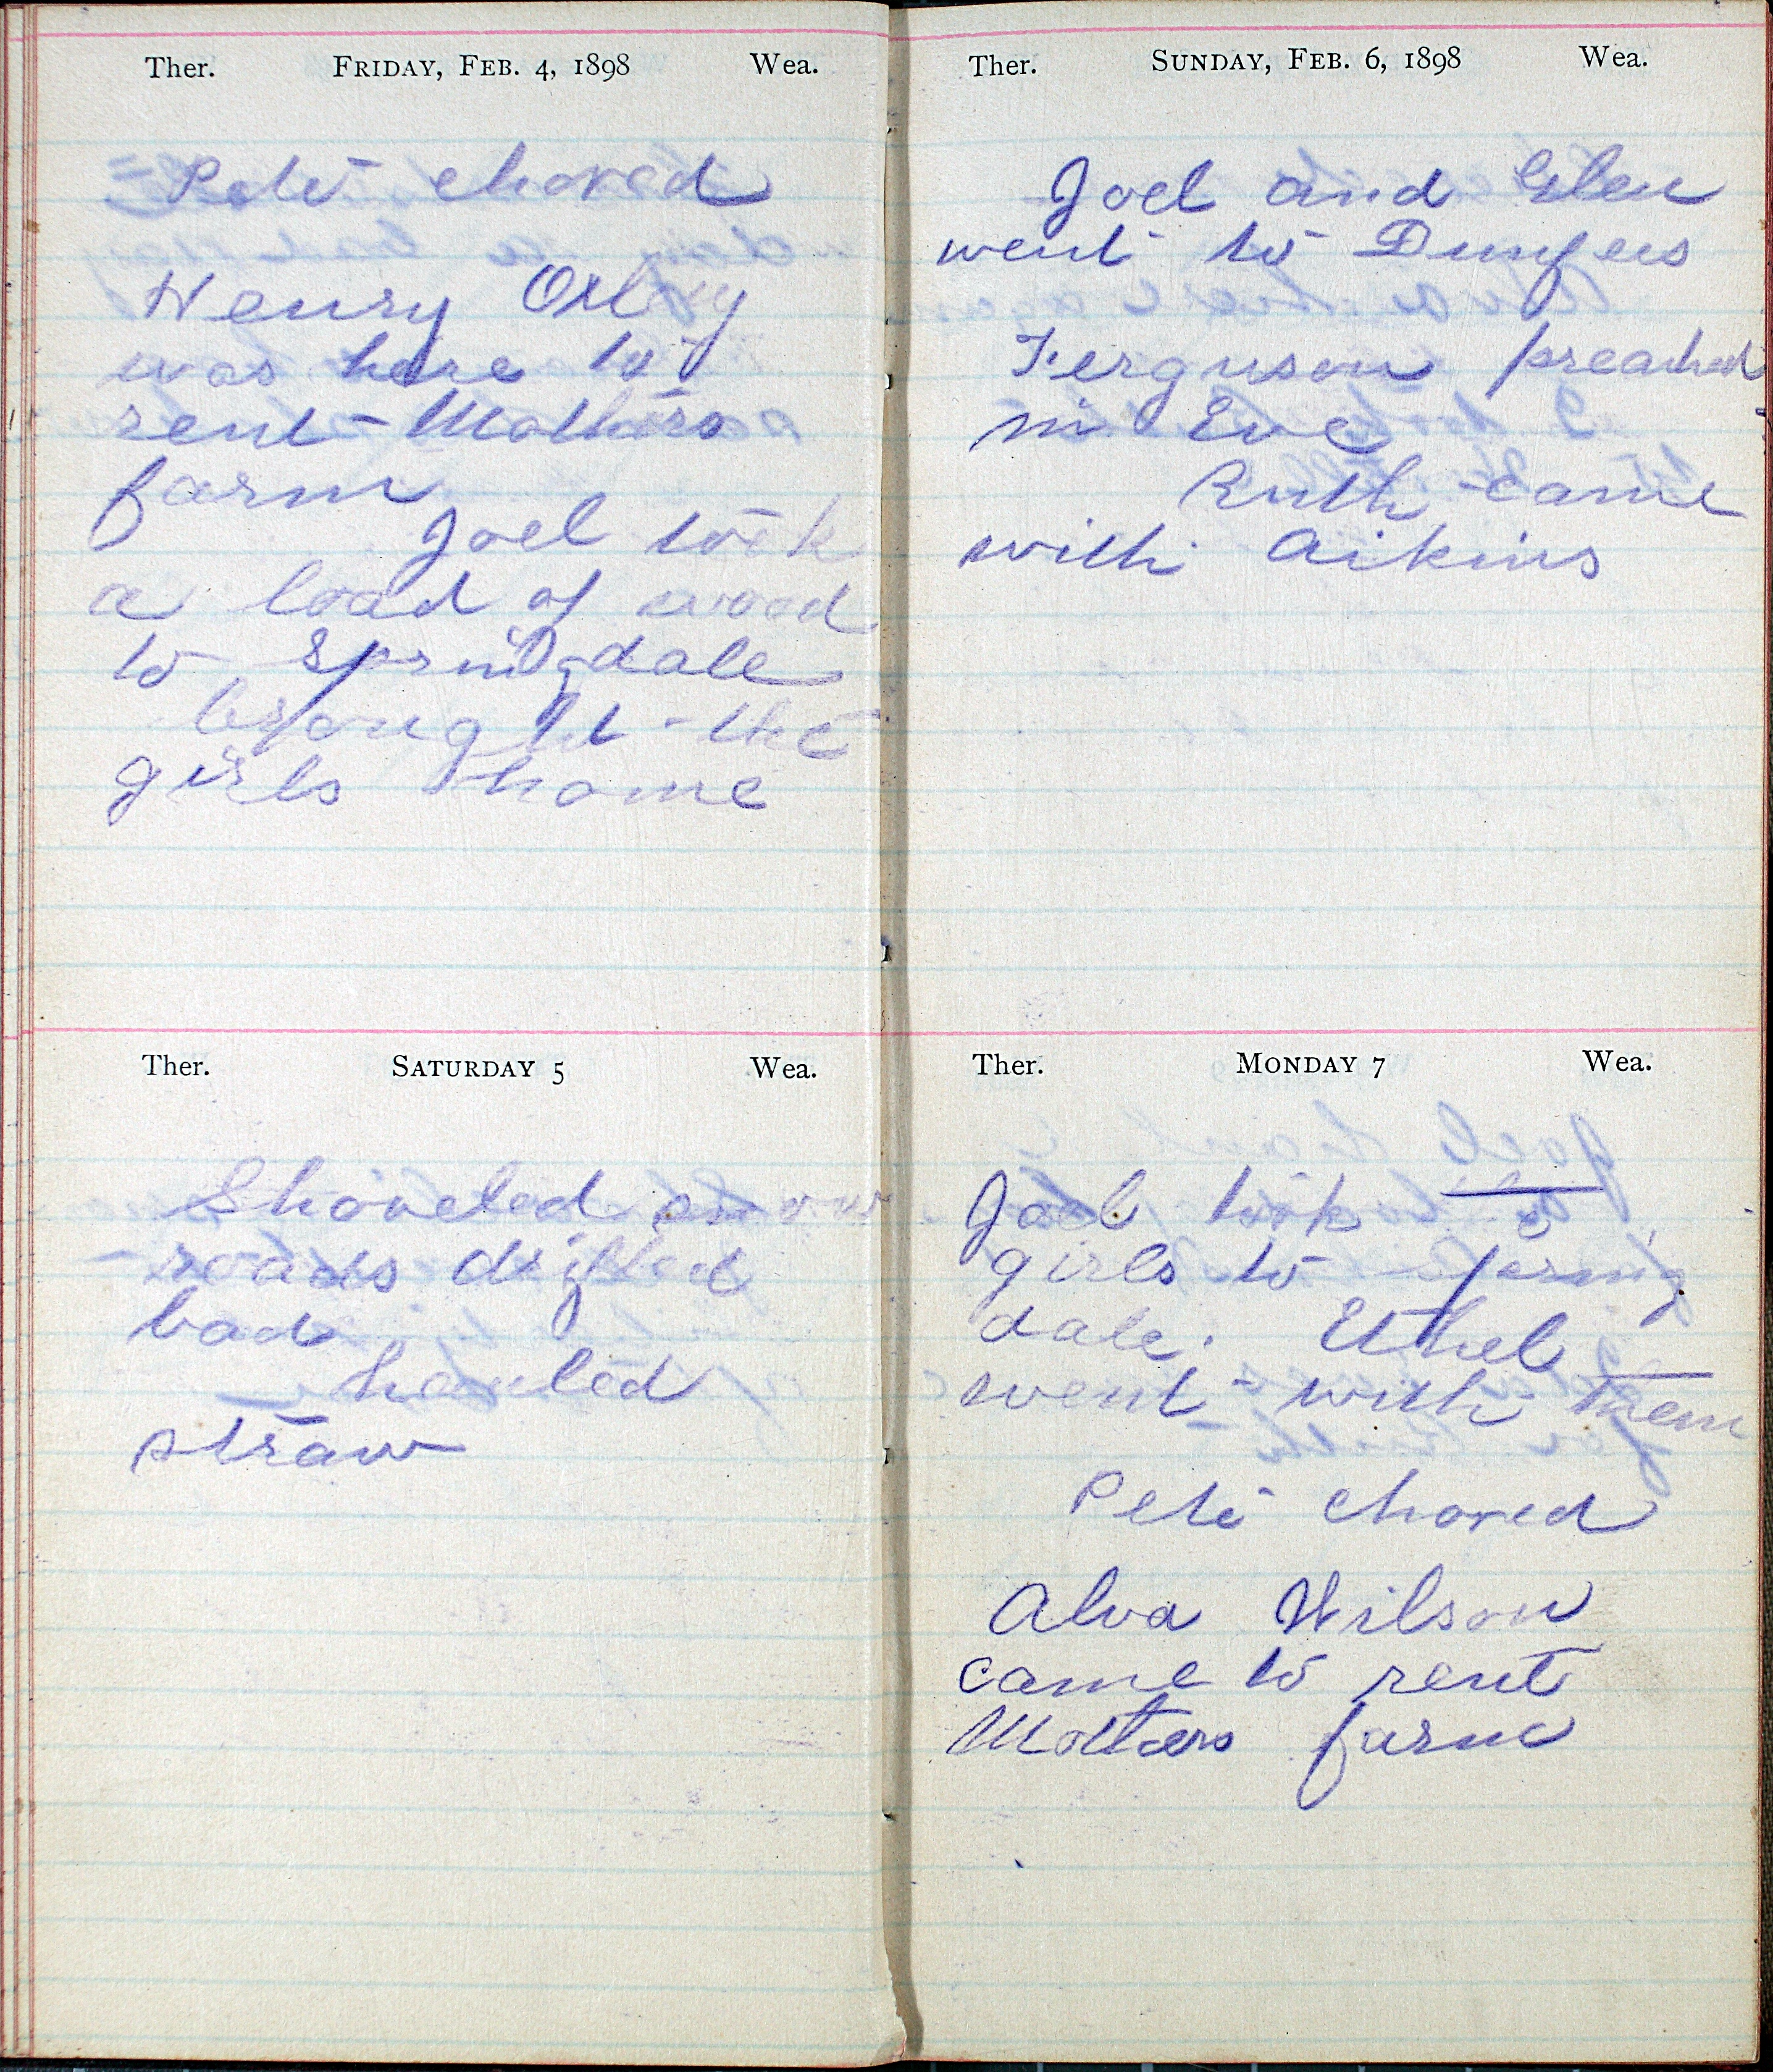 Ther. FRIDAY, FEB. 4, 1898 Wea.
Pete chored
Henry
was here to
rent Mothers
farm
Joel took
a load of wood
to Springdale
brought the
girls home
Ther. SATURDAY 5 Wea.
Shoveled snow
roads drifted
bad
hauled
straw
Ther. SUNDAY, FEB. 6, 1898 Wea.
Joel and Glen
went to
Ferguson preached
in Eve
Ruth came
with Aikins
Ther. MONDAY 7 Wea.
Joel took the
girls to Spring
dale. Ethel
went with them
Pete chored
Alva Wilson
came to rent
Mothers farm